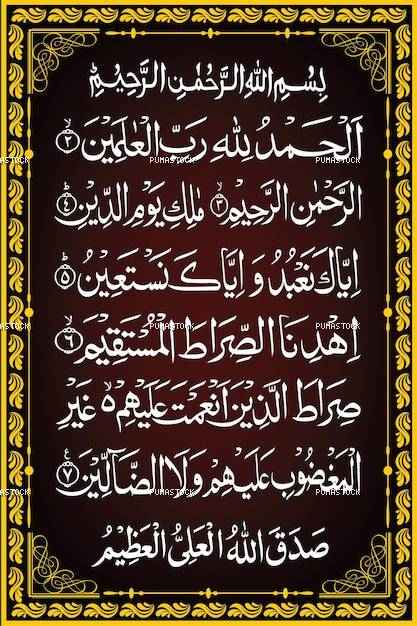 بِسْمِ اللهِ الرَّحْمٰنِ الرَّحِيْمِ
اَلْحَمْدُ لِلّٰهِ رَبِّ الْعٰلَمِيْنَ ۝٢
الرَّحْمٰنِ الرَّحِيْمِ ۝٣ مٰلِكِ يَوْمِ الدِّيْنِ ۝٤
اِيَّاكَ نَعْبُدُ وَ اِيَّاكَ نَسْتَعِيْنُ ۝٥
اِهْدِنَا الصِّرَاطَ الْمُسْتَقِيْمَ ۝٦
صِرَاطَ الَّذِيْنَ اَنْعَمْتَ عَلَيْهِمْ ۵ غَيْرِ
الْمَغْضُوْبِ عَلَيْهِمْ وَلَا الضَّآلِّيْنَ ۝٧
صَدَقَ اللهُ الْعَلِىُّ الْعَظِيْمُ
PUHASTOCK PUHASTOCK PUHASTOCK
PUHASTOCK PUHASTOCK PUHASTOCK
PUHASTOCK PUHASTOCK PUHASTOCK
PUHASTOCK PUHASTOCK PUHASTOCK